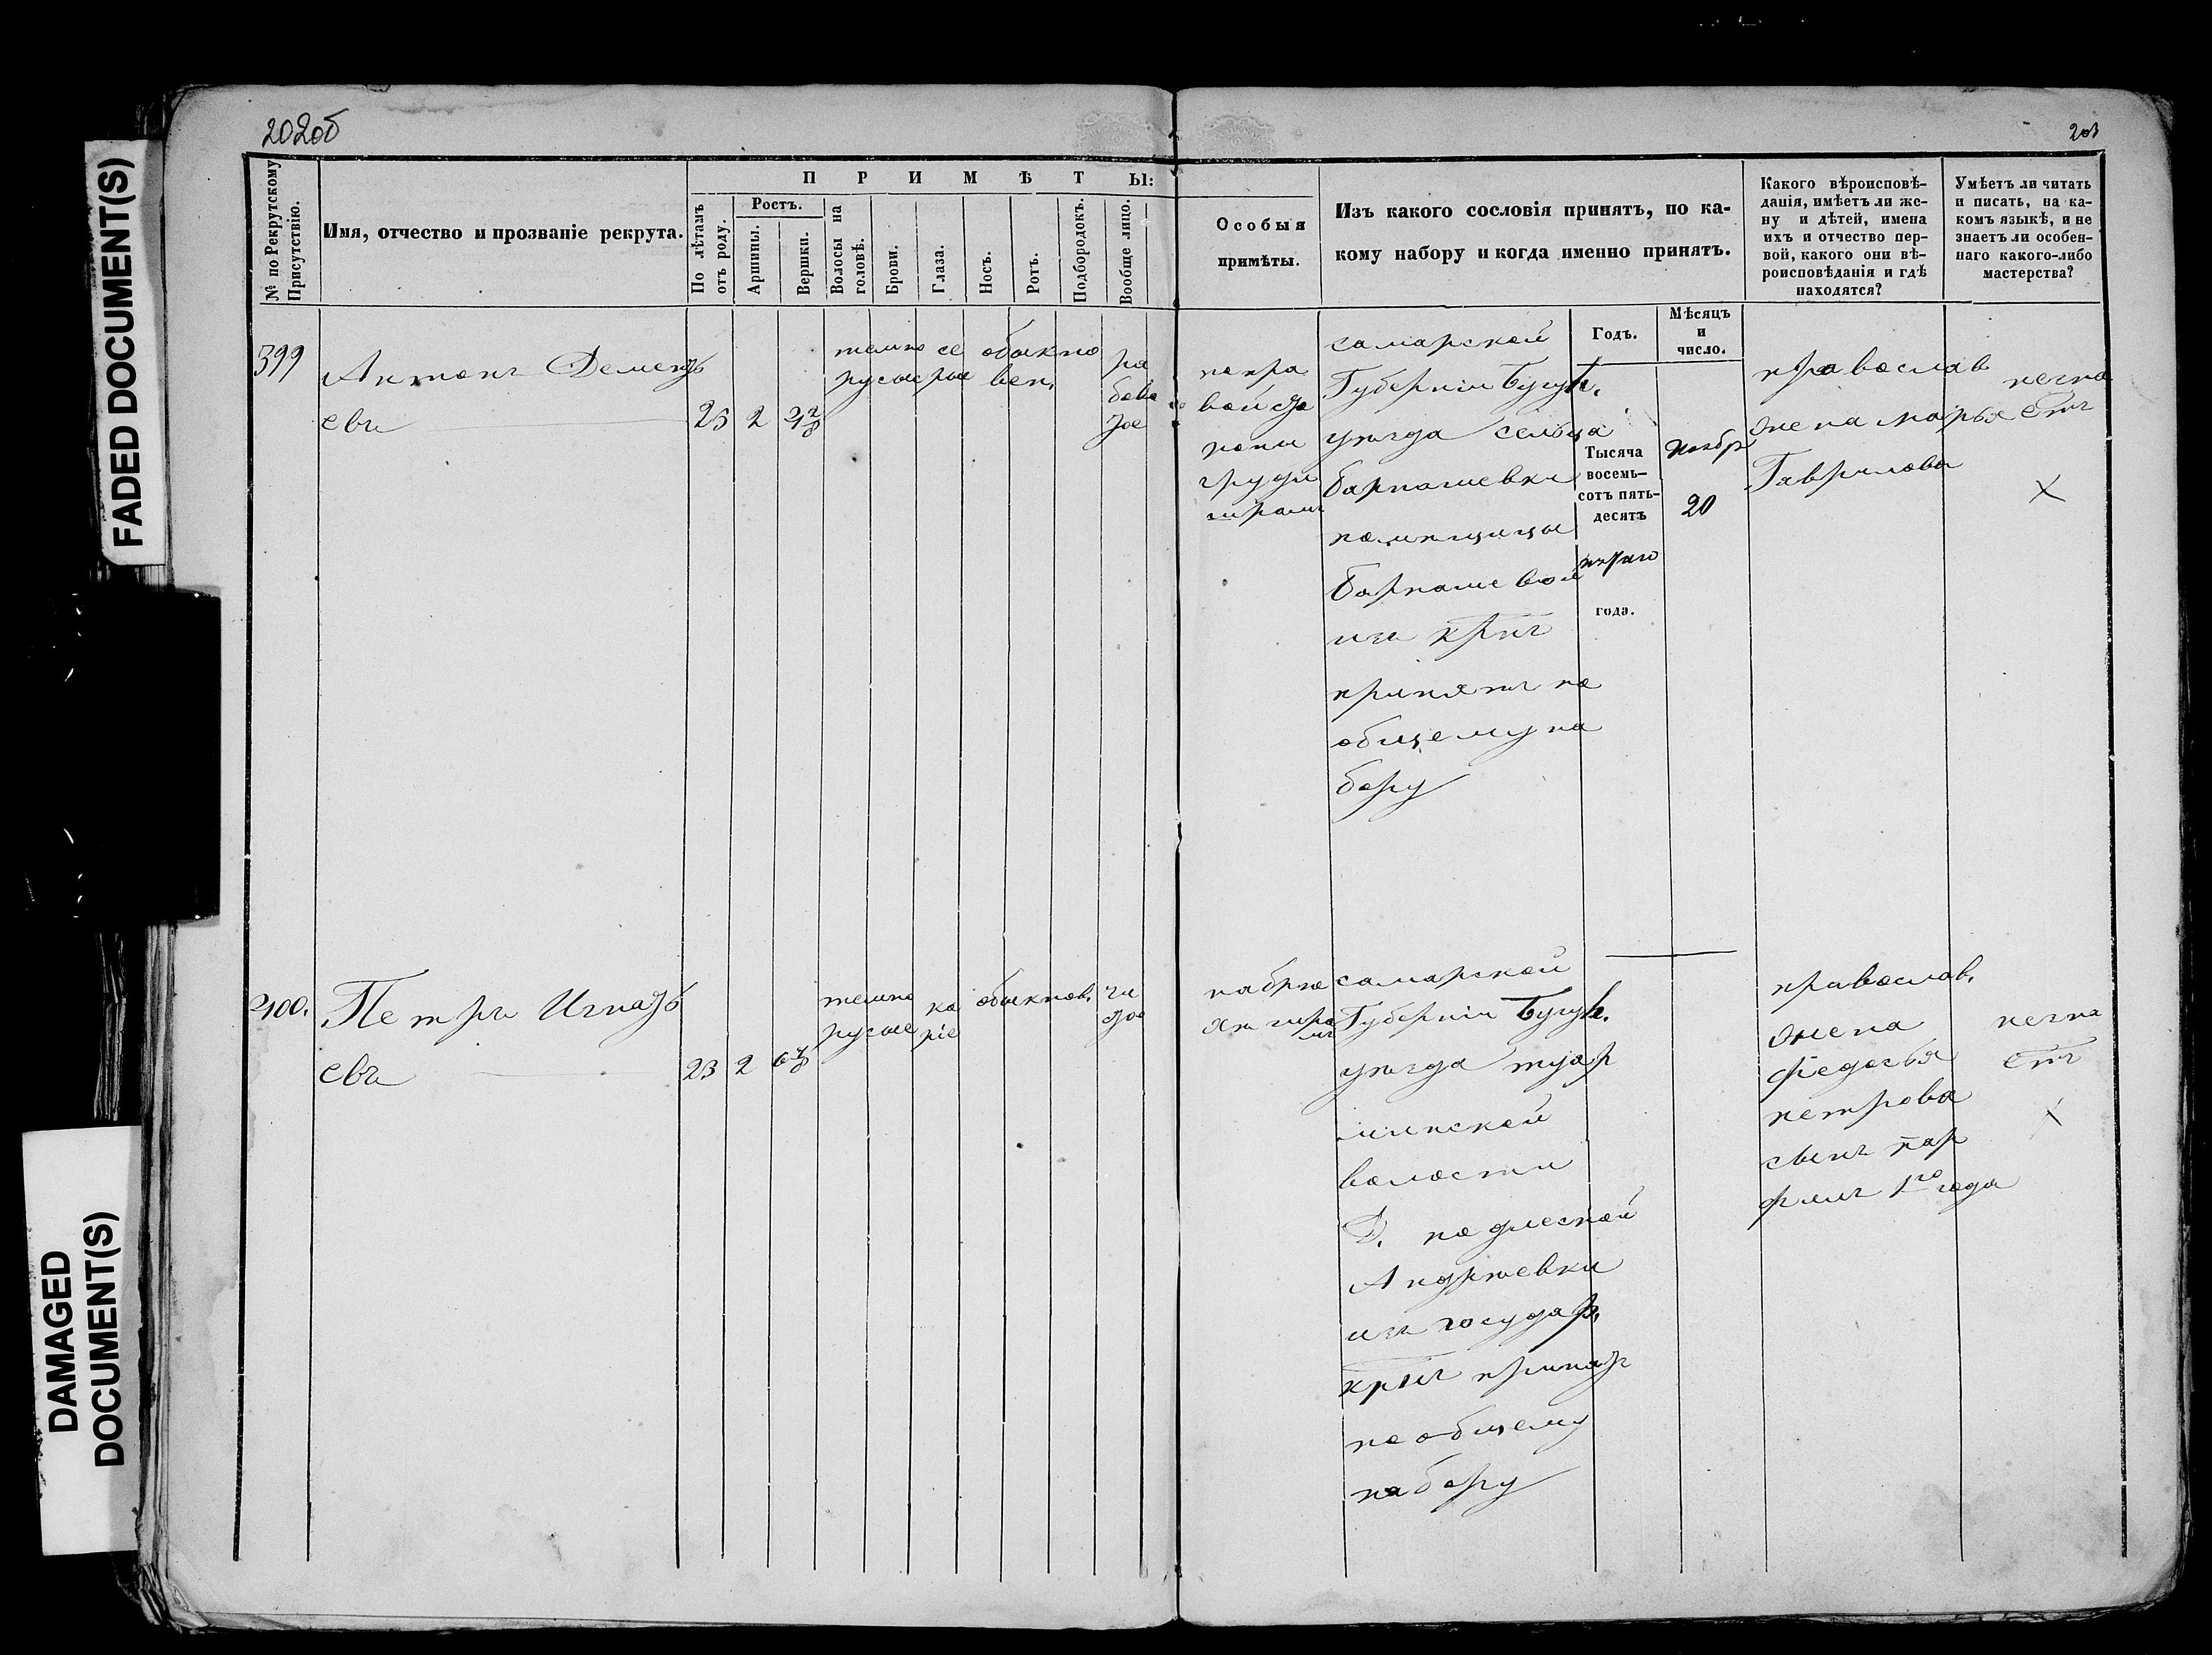 FADED DOCUMENT(S)
DAMAGED
DOCUMENT(S)
202об
203
№ по Рекрутскому
Присутствію.
Имя, отчество и прозваніе рекрута.
ПРИМѢТЫ:
По лѣтамъ
отъ роду.
Ростъ.
Аршины.
Вершки.
Волосы на
головѣ.
Брови.
Глаза.
Носъ.
Ротъ.
Подбородокъ.
Вообще лицо.
Особыя
примѣты.
Изъ какого сословія принятъ, по ка-
кому набору и когда именно принятъ.
Какого вѣроисповѣ-
данія, имѣетъ ли же-
ну и дѣтей, имена
ихъ и отчество пер-
вой, какого они вѣ-
роисповѣданія и гдѣ
находятся?
Умѣетъ ли читать
и писать, на ка-
комъ языкѣ, и не
знаетъ ли особен-
наго какого-либо
мастерства?
Годъ.
Мѣсяцъ
и
число.
399
Антонъ Дементь
евъ
23 2
темно
русые
се
рые
обыкно
вен.
ря
бова
тое
на пра
вой сто
роне
груди
шрамъ
самарской
Губерніи Бугул.
уѣзда сельца
барпошевки
помѣщицы
барпошевой
изъ крнъ
принятъ по
общему на
бору
Тысяча
восемь-
сотъ пять-
десятъ
пятаго
года.
Ноябр
20
православ
жена марья
Гаврилова
негра
ётъ
X
400.
Петръ Игнать
евъ
23 2
темно
русые
ка
ріе
обыкнов.
чи
стое
на брю
хе шра
мъ
самарской
Губерніи Бугул.
уѣзда туар
минской
волости
Д. подлеской
Андрѣевки
изъ государ.
крнъ принятъ
по общему
набору
православ.
жена
федосья
петрова
сынъ пар
финъ 1го года
негра
ётъ
X